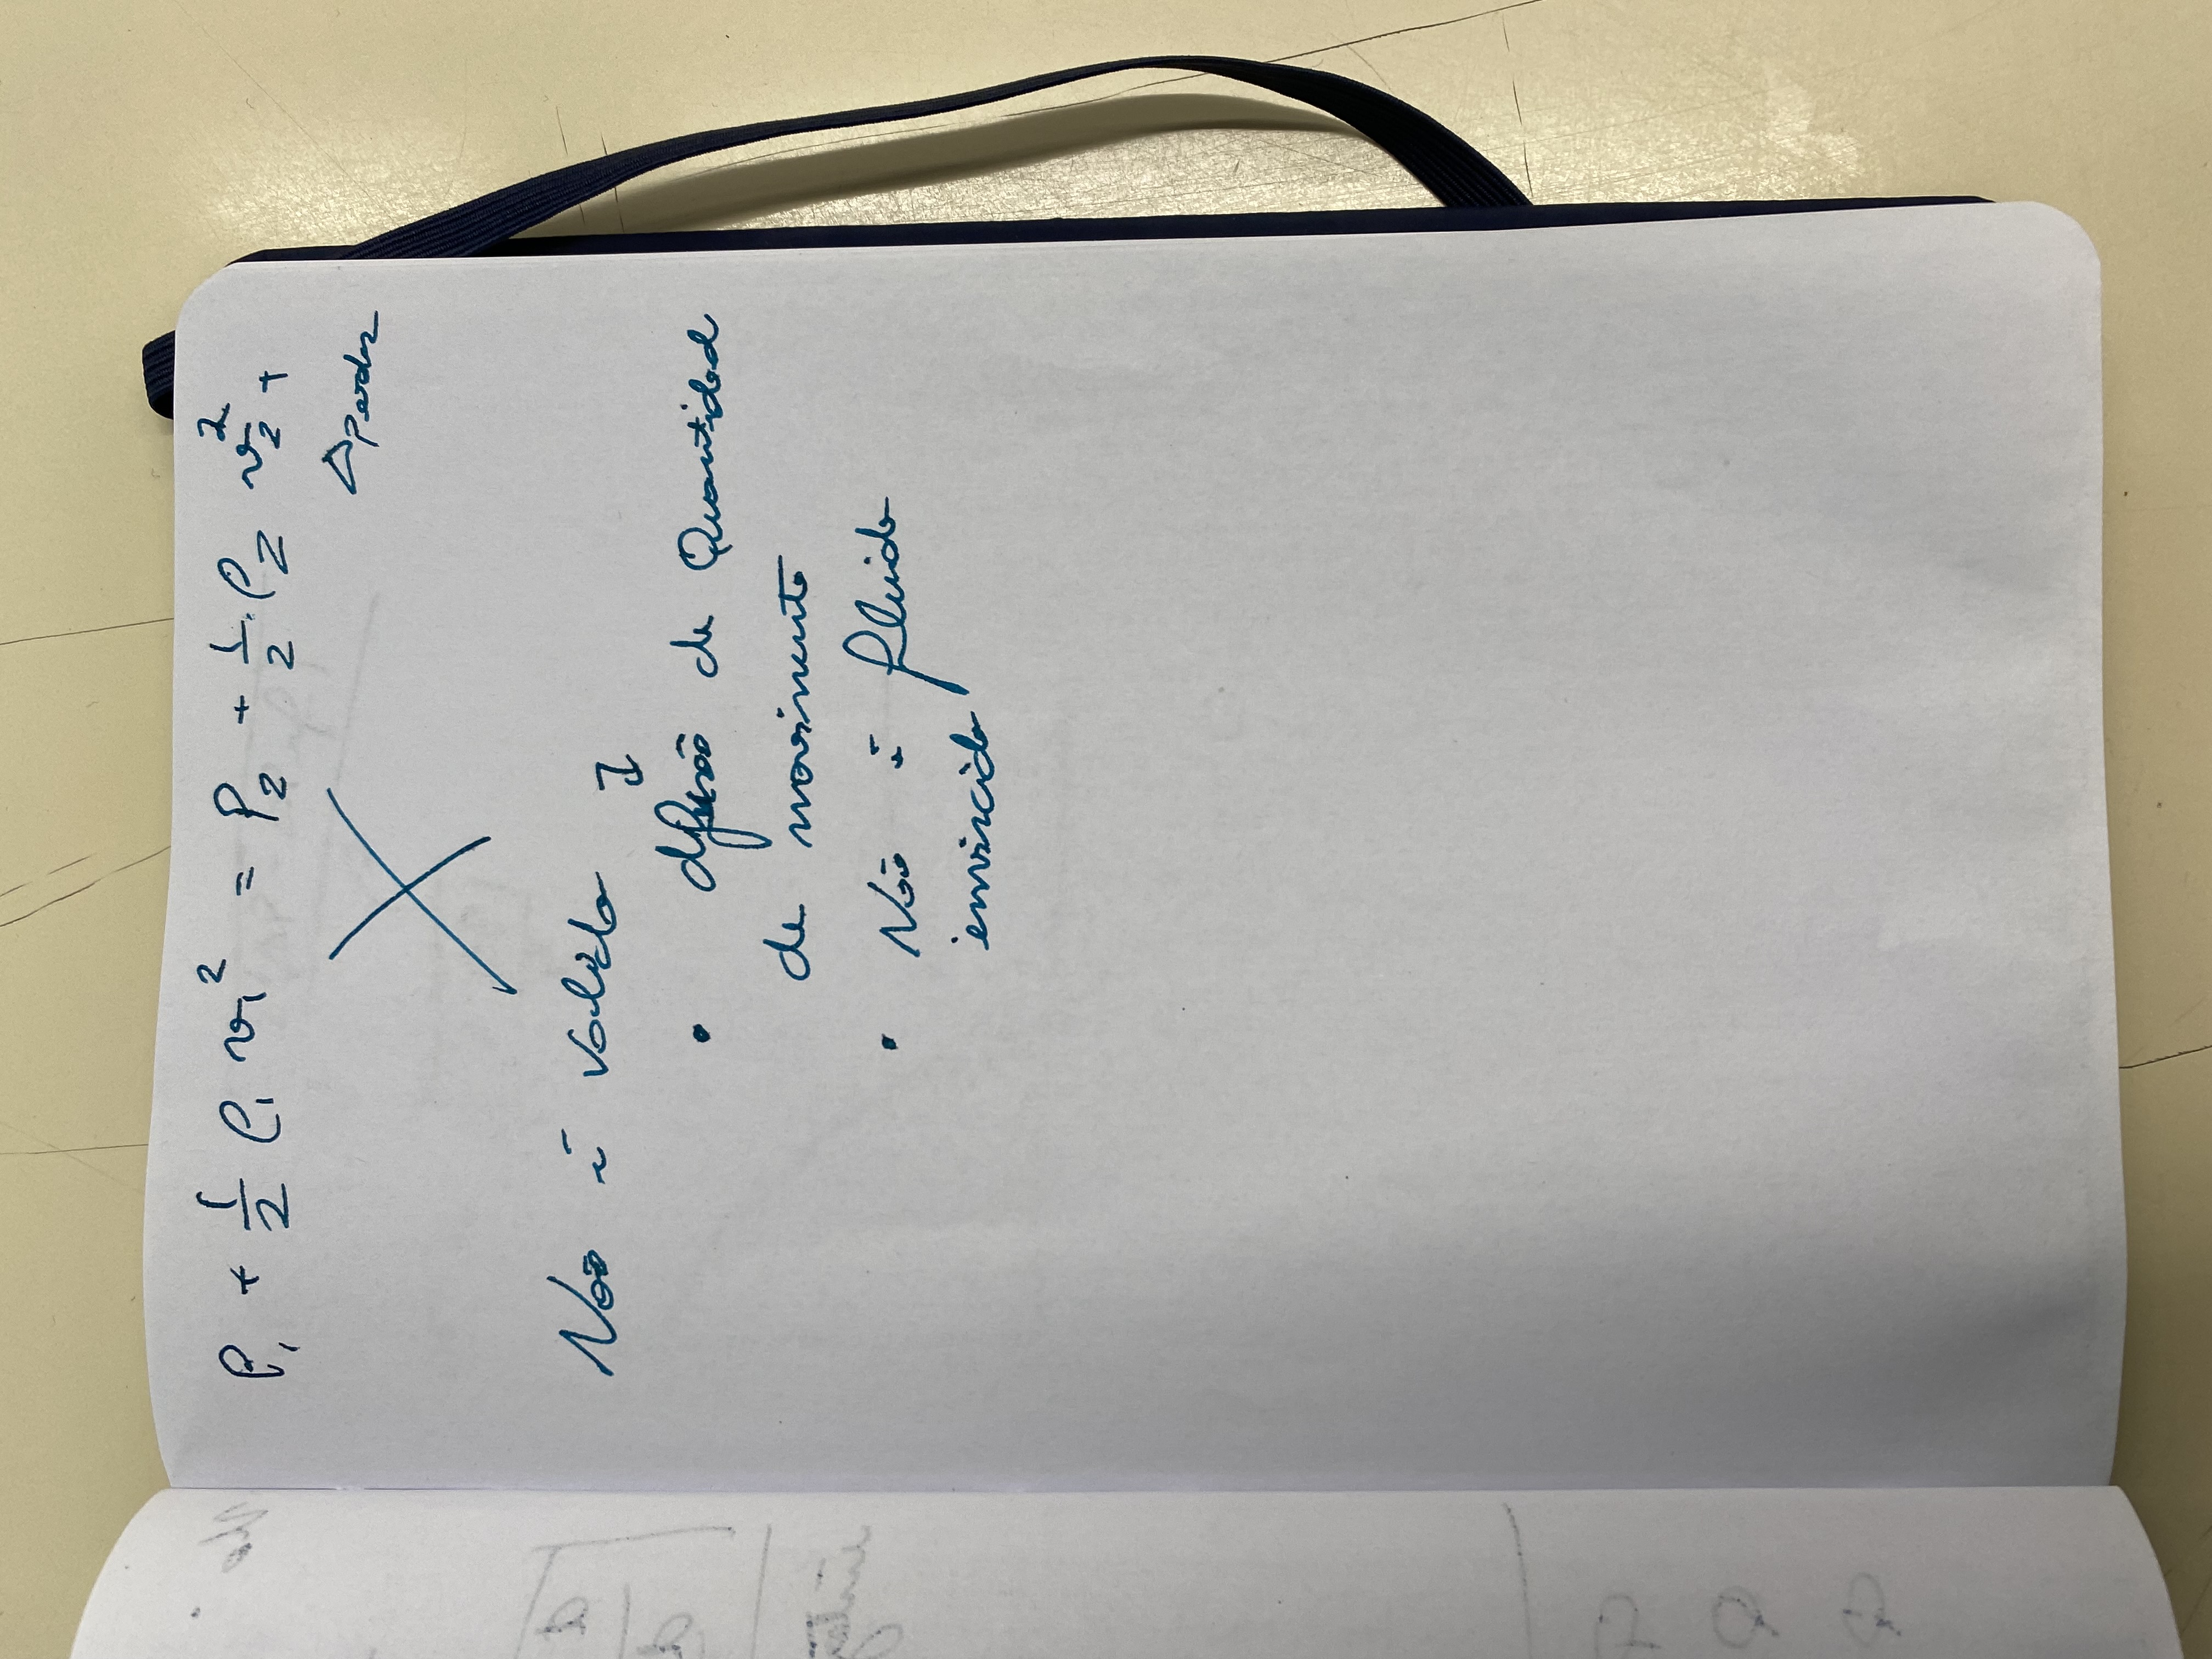 P₁ + 1/2 ρ₁ v₁² = P₂ + 1/2 · ρ₂ v₂² +
Δperdas
Não é valida
• difusão de Quantidad
de movimento
• Não é fluido
inviscido